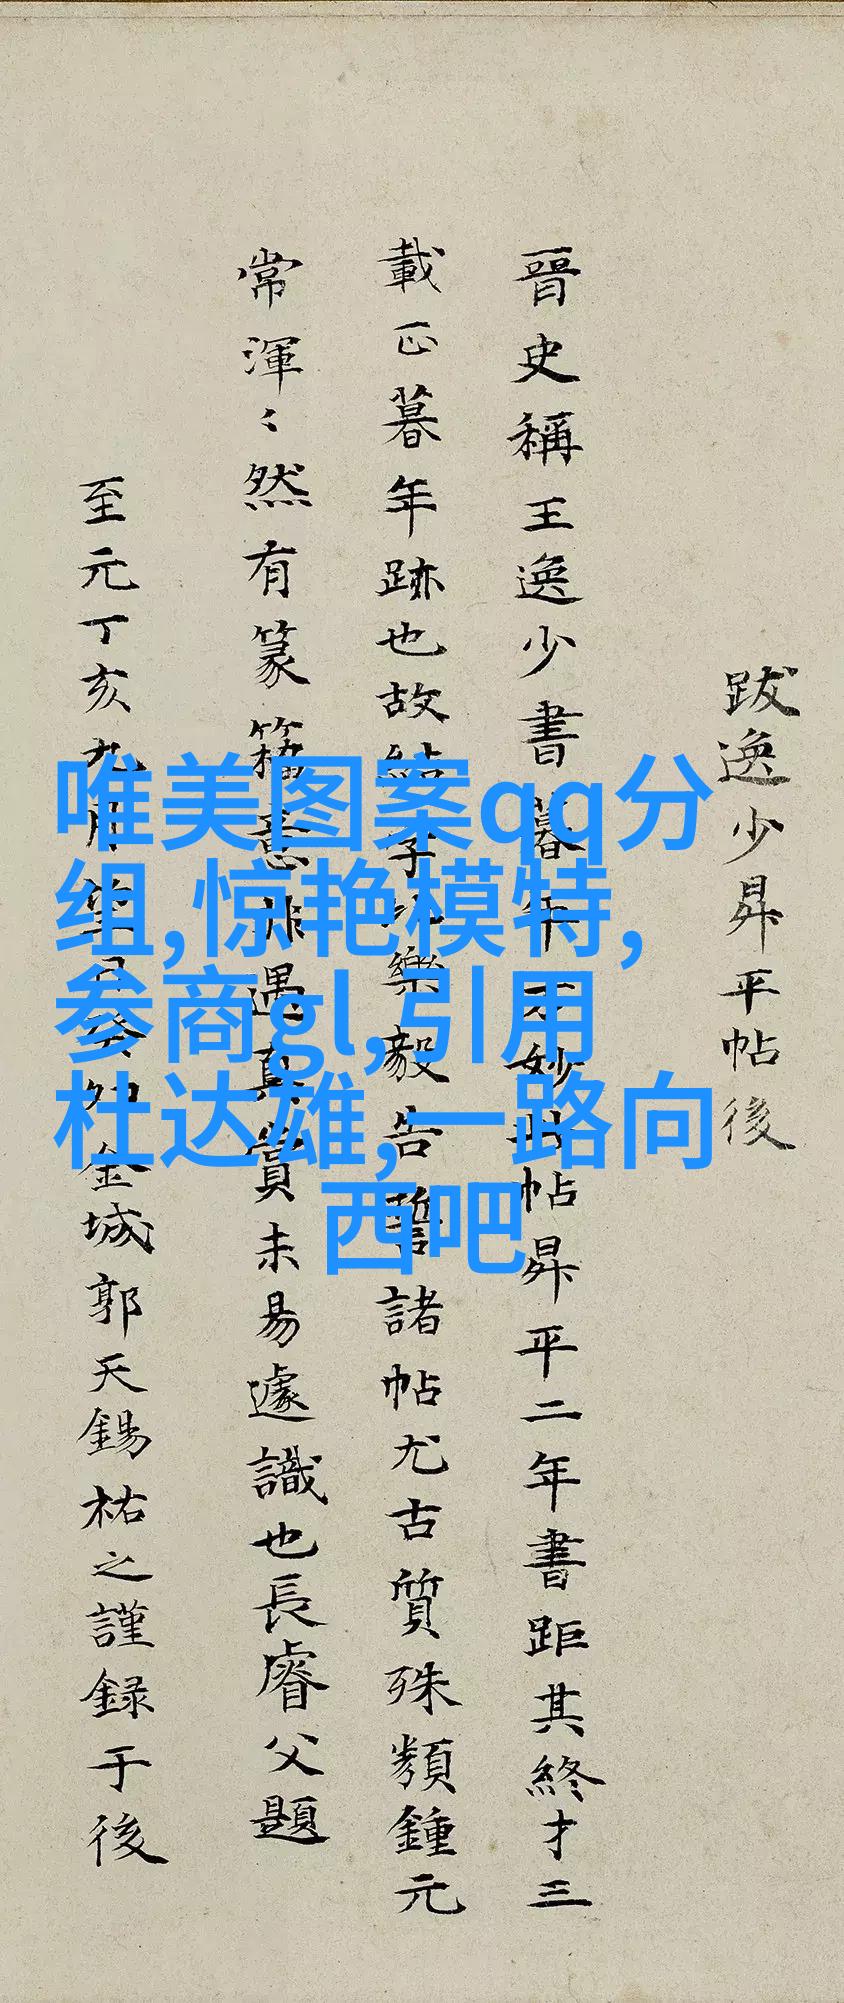 跋逸少昇平帖後
晉史稱王逸少書暮年方妙此帖昇平二年書距其終才三
載正暮年跡也故結字比樂毅告誓諸帖尤古質殊類鍾元
常渾〻然有篆籀意非遇真賞未易遽識也長睿父題
至元丁亥九月金城郭天錫祐之謹録于後
唯美图案qq分
组,惊艳模特,
参商gl,引用
杜达雄,一路向
西吧